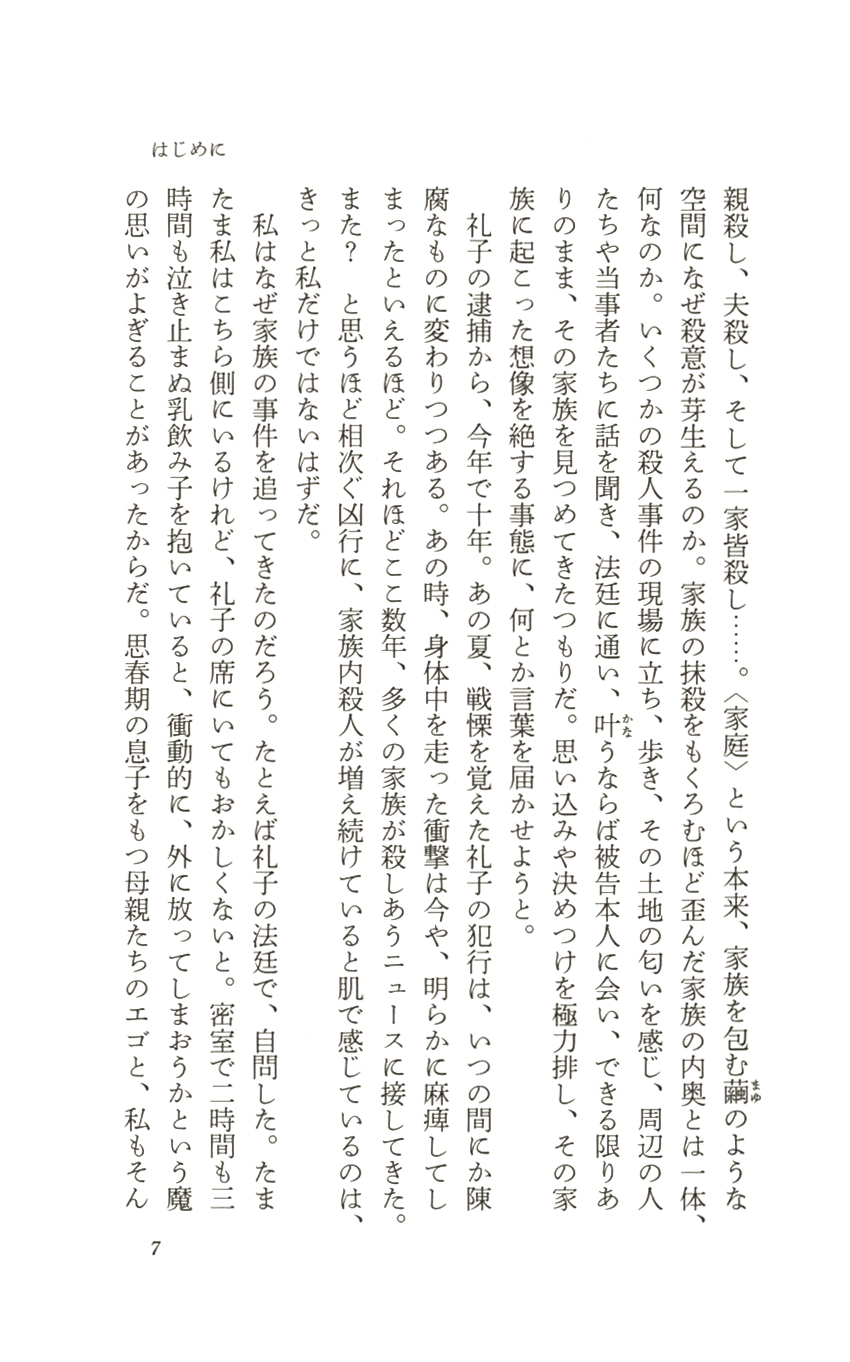 はじめに
親殺し、夫殺し、そして一家皆殺し……。〈家庭〉という本来、家族を包む繭のような
空間になぜ殺意が芽生えるのか。家族の抹殺をもくろむほど歪んだ家族の内奥とは一体、
何なのか。いくつかの殺人事件の現場に立ち、歩き、その土地の匂いを感じ、周辺の人
たちや当事者たちに話を聞き、法廷に通い、叶うならば被告本人に会い、できる限りあ
りのまま、その家族を見つめてきたつもりだ。思い込みや決めつけを極力排し、その家
族に起こった想像を絶する事態に、何とか言葉を届かせようと。
礼子の逮捕から、今年で十年。あの夏、戦慄を覚えた礼子の犯行は、いつの間にか陳
腐なものに変わりつつある。あの時、身体中を走った衝撃は今や、明らかに麻痺してし
まったといえるほど。それほどここ数年、多くの家族が殺しあうニュースに接してきた。
また？　と思うほど相次ぐ凶行に、家族内殺人が増え続けていると肌で感じているのは、
きっと私だけではないはずだ。
私はなぜ家族の事件を追ってきたのだろう。たとえば礼子の法廷で、自問した。たま
たま私はこちら側にいるけれど、礼子の席にいてもおかしくないと。密室で二時間も三
時間も泣き止まぬ乳飲み子を抱いていると、衝動的に、外に放ってしまおうかという魔
の思いがよぎることがあったからだ。思春期の息子をもつ母親たちのエゴと、私もそん
7